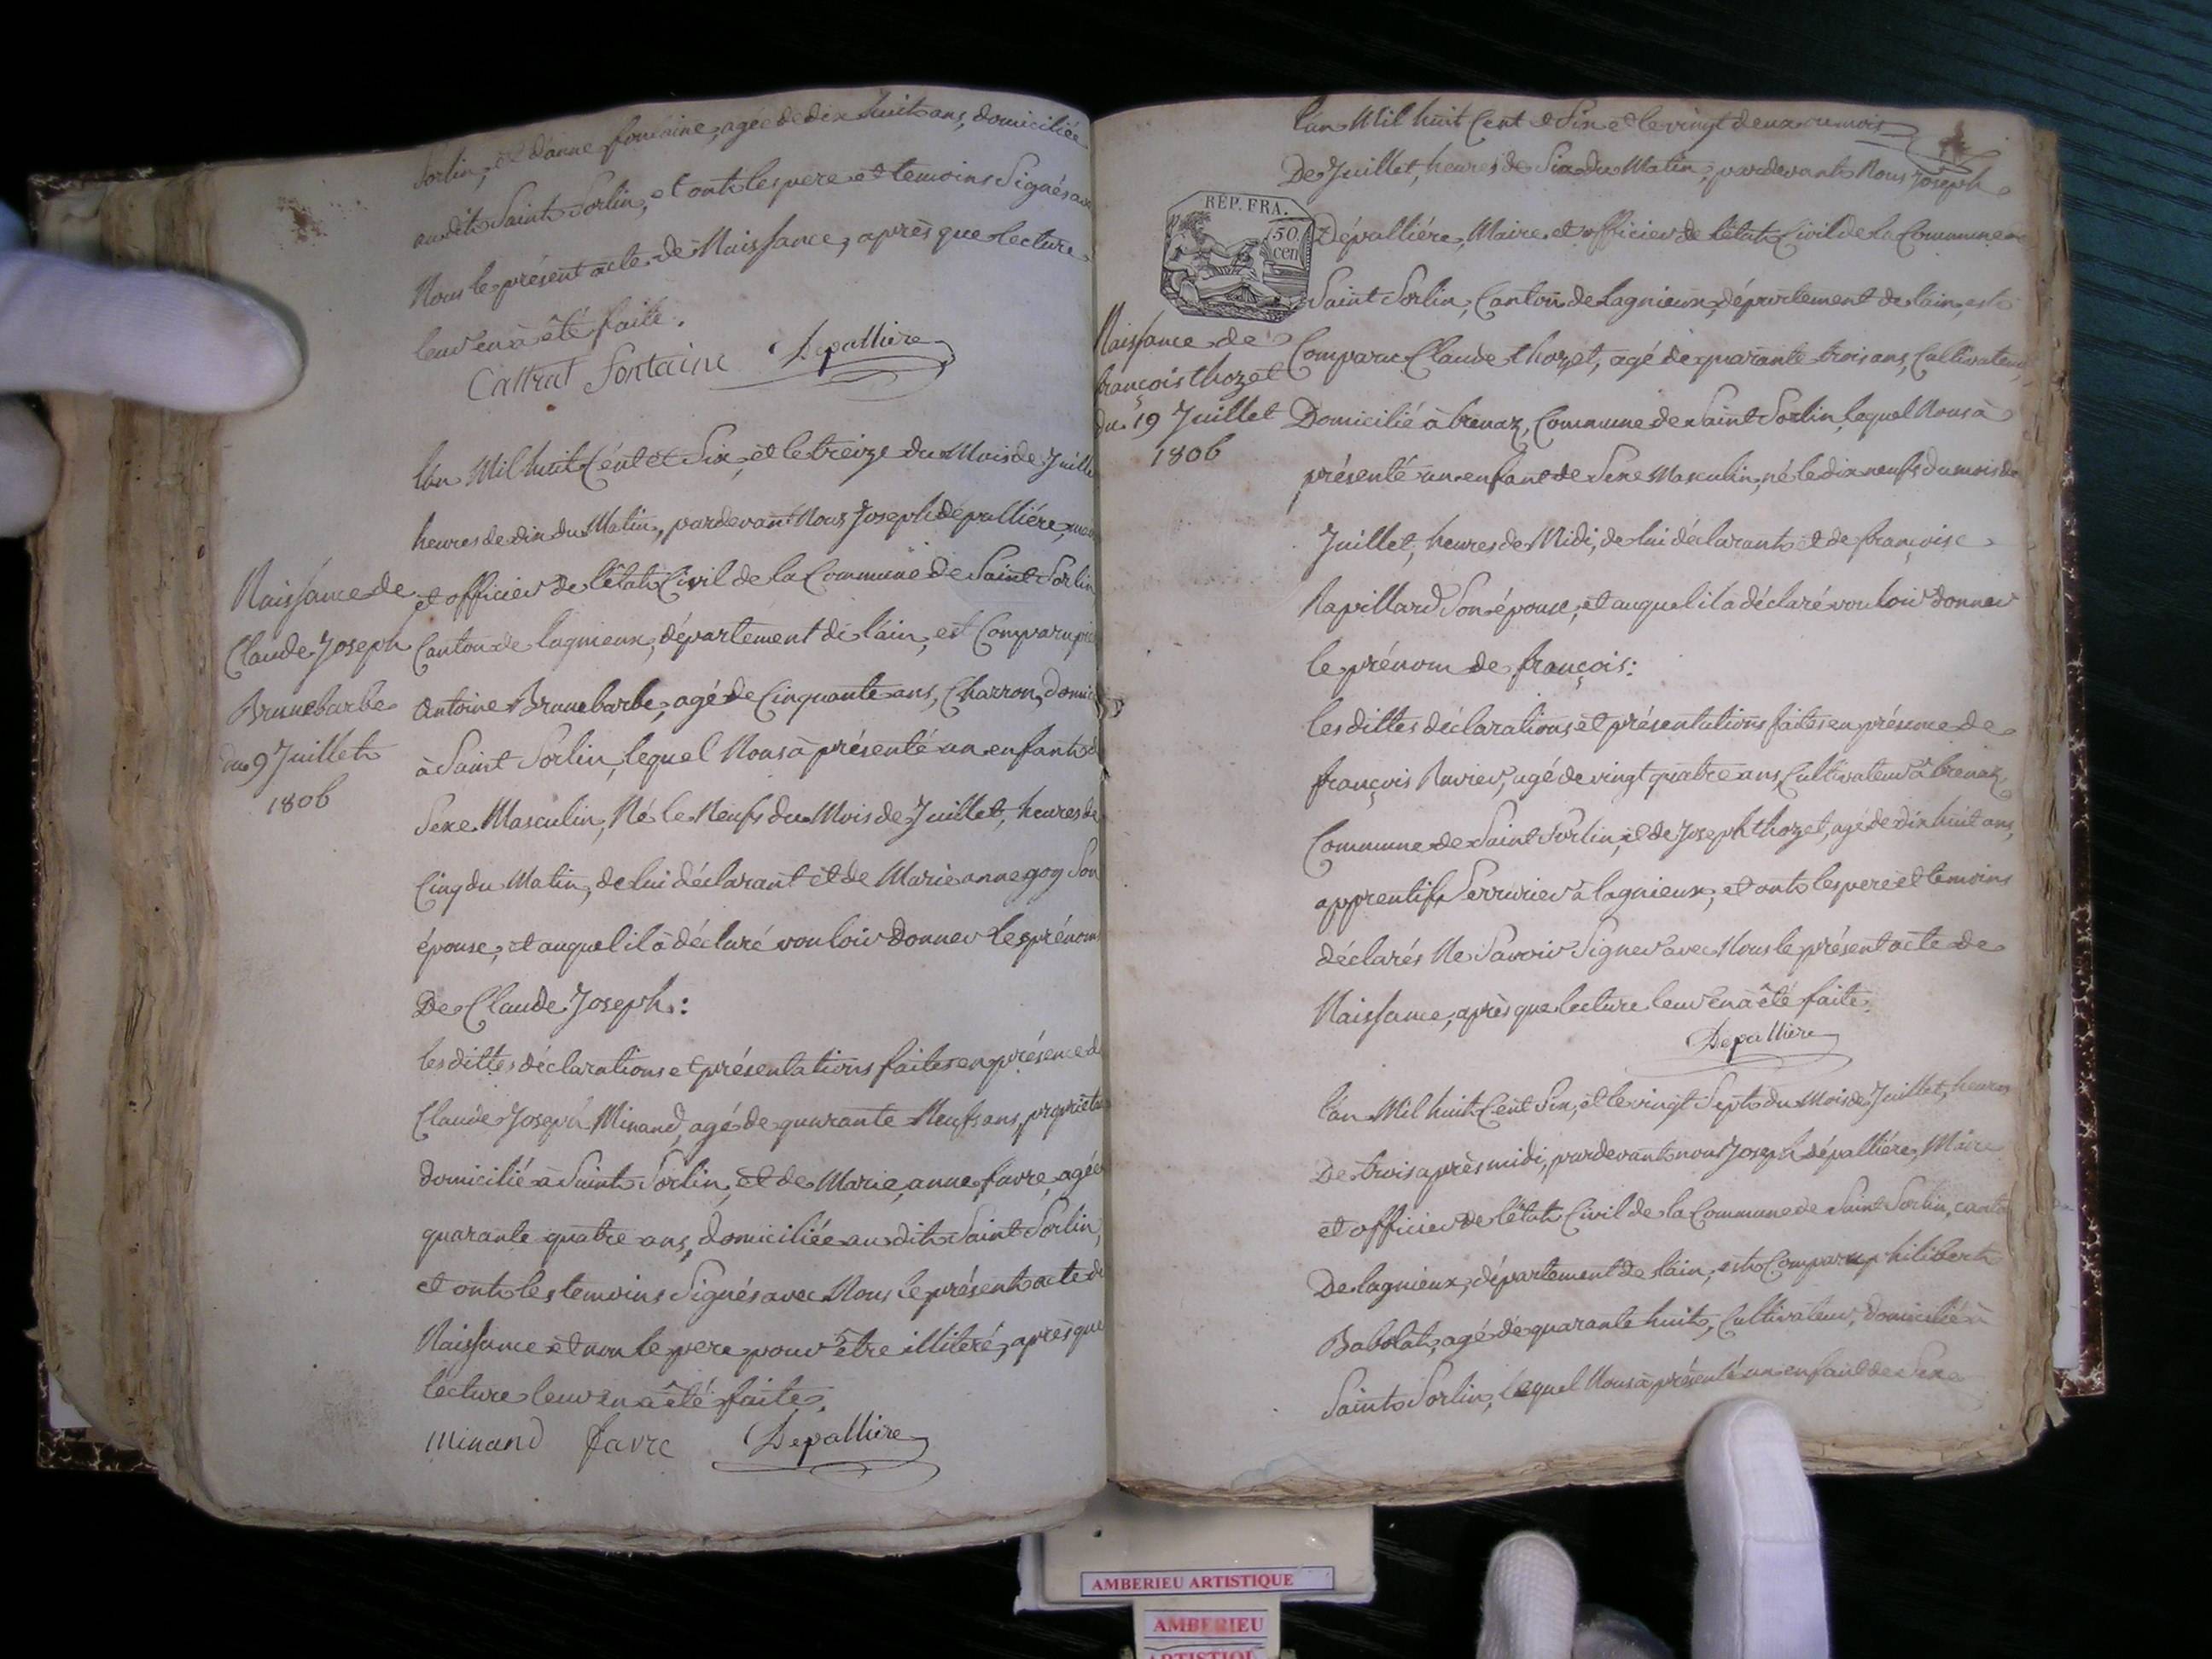 Sorlin, et d'anne fontaine, agée de dix huit ans, domiciliée
audit Saint Sorlin, et ont les pere et temoins Signés avec
Nous le présent acte de Naissance, après que lecture
leur en à été faite.
Cattrat Fontaine Depalliere
l'an Mil huit Cent et Six, et le treize du Mois de Juillet
heures de dix du Matin, pardevant Nous Joseph dépalliére, maire
et officier de l'état Civil de la Commune de Saint Sorlin
Canton de lagnieux, département de l'ain, est Comparu
antoine Brunebarbe, agé de Cinquante ans, Charron, domicilié
à Saint Sorlin, lequel Nous à présenté un enfant de
Sexe Masculin, Né le Neufs du Mois de Juillet, heures de
Cinq du Matin, de lui déclarant et de Marie anne gog Son
épouse, et auquel il à déclaré vouloir donner les prénoms
De Claude Joseph :
les dittes déclarations et présentations faites en présence de
Claude Joseph Minand, agé de quarante Neufs ans, propriétaire
domicilié à Saint Sorlin, et de Marie anne favre, agée
quarante quatre ans, domiciliée au dit Saint Sorlin,
et ont les temoins Signés avec Nous le présent acte de
Naissance et non le pere pour être illiteré, après que
lecture leur en à été faite.
Minand favre Depalliere
Naissance de
Claude Joseph
Brunebarbe
du 9 Juillet
1806
l'an Mil huit Cent et Six et le vingt deux du mois
De Juillet, heures de Six du Matin, pardevant Nous Joseph
Dépalliére, Maire et officier de l'état Civil de la Commune de
Saint Sorlin, Canton de Lagnieux, département de lain, est
Comparu Claude thozet, agé de quarante trois ans, Cultivateur,
Domicilié à brenaz, Commune de Saint Sorlin, lequel Nous à
présenté un enfant de Sexe Masculin, né le dix neufs du mois de
Juillet, heures de Midi, de lui déclarant et de françoise
Rapillard Son épouse, et auquel il à déclaré vouloir donner
le prénom de françois :
les dittes déclarations et présentations faites en présence de
françois Ravier, agé de vingt quatre ans, Cultivateur à brenaz,
Commune de Saint Sorlin, et de Joseph thozet, agé de dix huit ans,
apprentifs Serrurier à lagnieux, et ont les pere et temoins
déclarés Ne Savoir Signer avec Nous le présent acte de
Naissance, après que lecture leur en à été faite.
Depalliere
RÉP. FRA.
50
cen
Naissance de
françois thozet
du 19 Juillet
1806
l'an Mil huit Cent Six, et le vingt Sept du Mois de Juillet, heures
De trois après midi, pardevant nous Joseph dépalliére, Maire
et officier de l'état Civil de la Commune de Saint Sorlin, canton
De lagnieux, département de lain, est Comparu philibert
Babolat, agé de quarante huit, Cultivateur, domicilié à
Saint Sorlin, lequel Nous à présenté un enfant de Sexe
AMBERIEU ARTISTIQUE
AMBERIEU
ARTISTIQUE